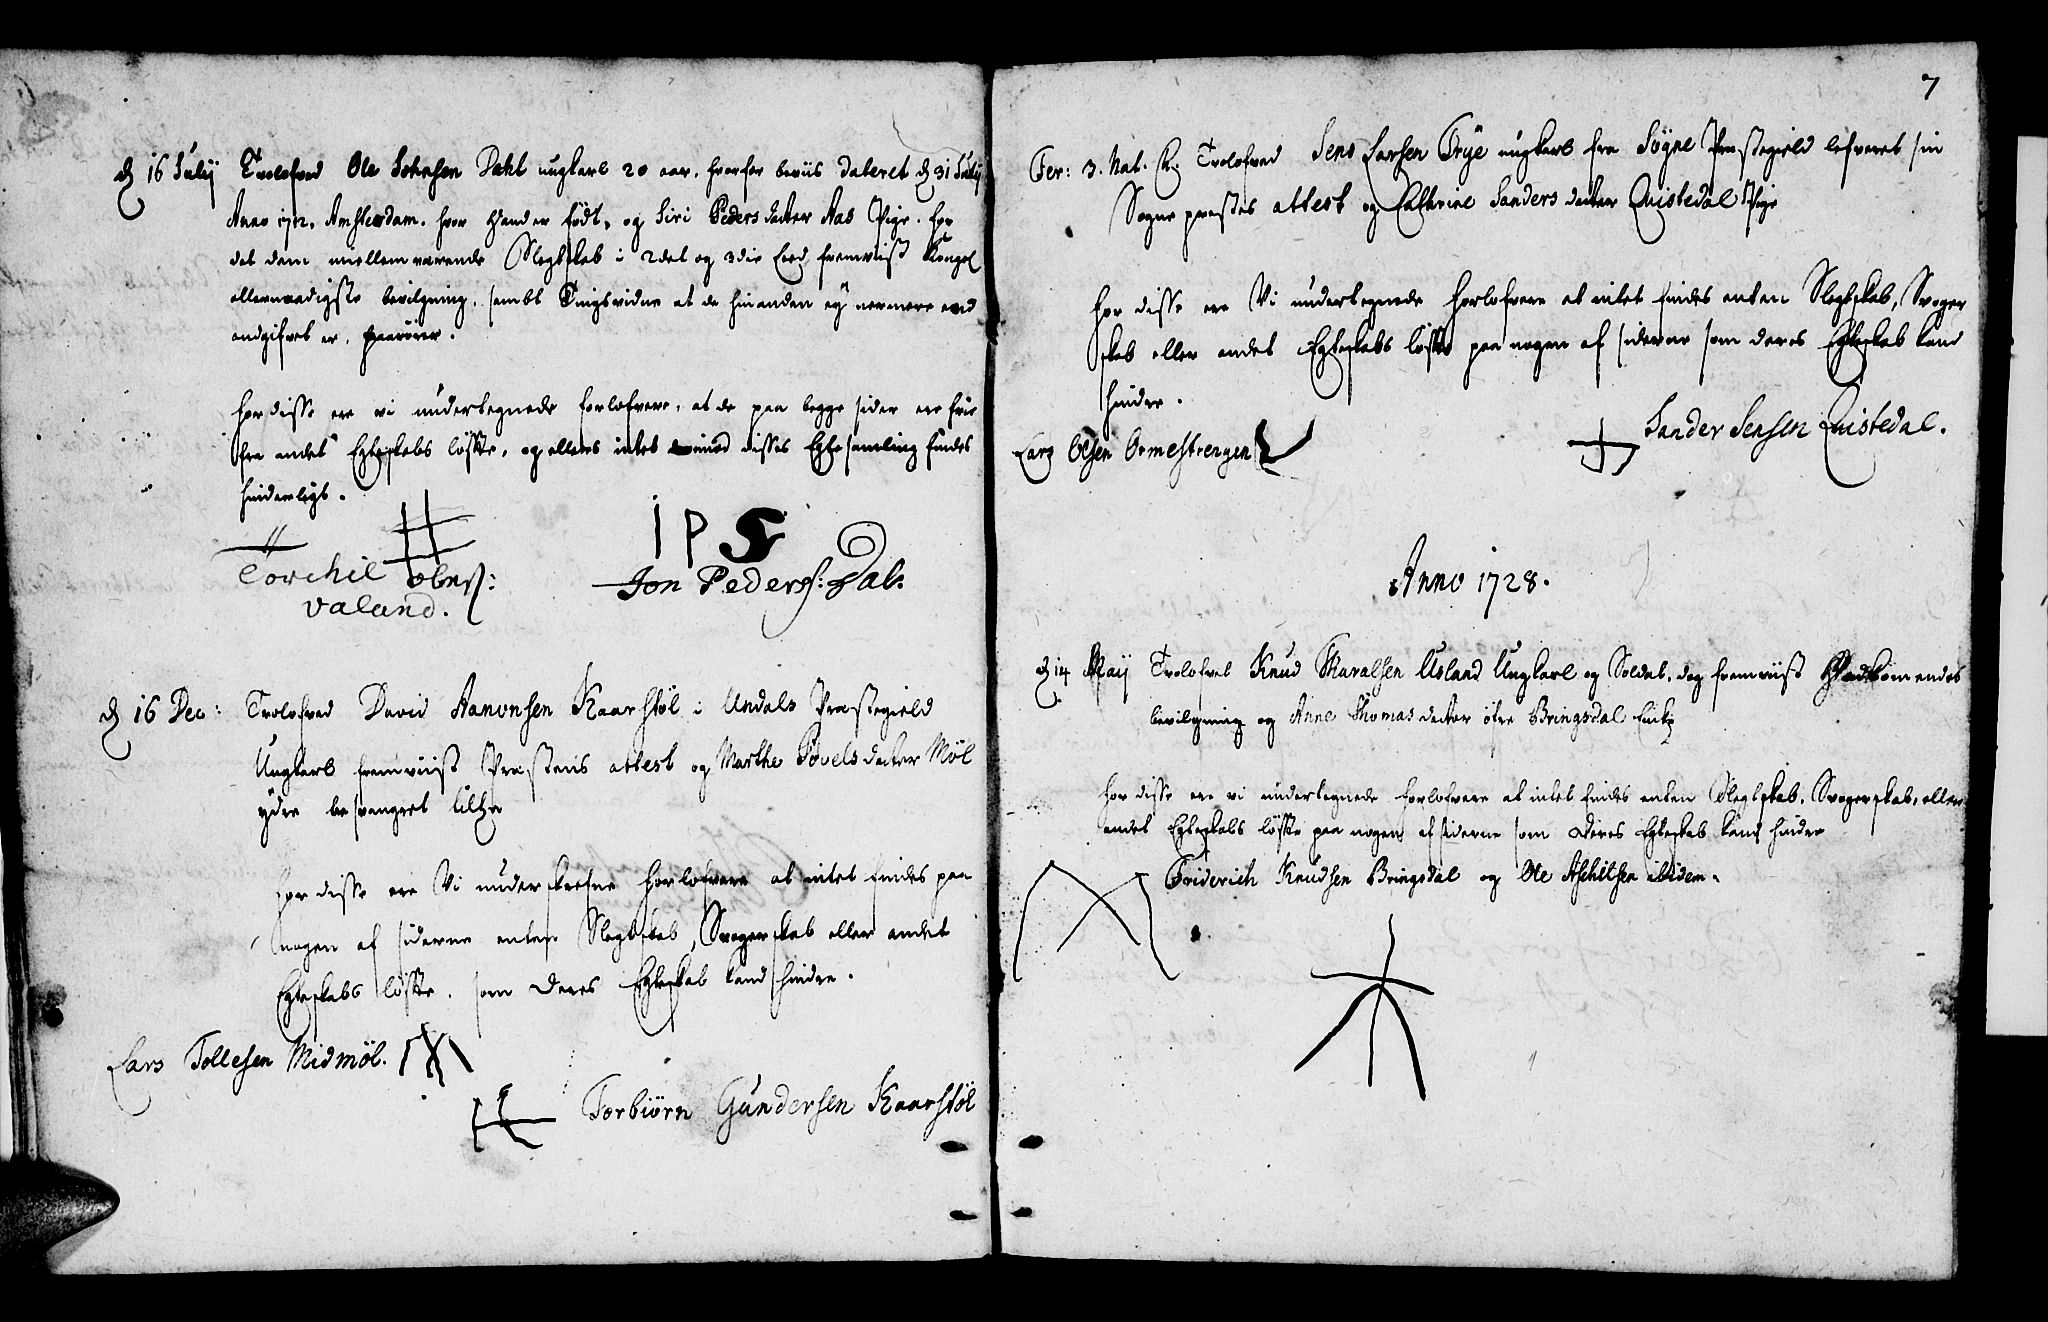 d 16 Julij Trolofved Ole Johnsen Dahl ungkarl 20 aar, hvorfor beviis dateret d 31 Julij
Anno 1712, Amsterdam, hvor hand er födt, og Siri Pedersdatter Aas Pige. for
det dem miellem værende Slegtskab i 2det og 3die Leed, fremviist Kongel
allernaadigste bevilgning, sambt Tingsvidne at de hinanden ej nermere end
angifvet er, paarörer.
For disse ere vi undertegnede forlofvere, at de paa begge sider ere frie
fra andet Egteskabs löffte, og ellers intet imod disses Egte samling findes
hinderligt.
I P S
Torchil Olers:
Valand.
Jon Peders: Dal.
d 16 Dec: Trolofved David Aanonsen Kaarstöl i Undals Præstegield
Ungkarl fremviist Præstens attest og Marthe Povels datter Möl
ydre besvangret
For disse ere Vi underskrefne Forlofvere at intet findes paa
nogen af siderne enten Slegtskab, Svogerskab eller andet
Egteskabs löffte, som deres Egteskab kand hindre.
Lars Tollesen Midmöl.
Torbiörn Gundersen Kaarstöl
7
Fer: 3. Nat. C. Trolofved Jens Larsen Trye ungkarl fra Sögne Præstegield lefveret sin
Sogne præstes attest og Cathrine Sanders datter Quistedal Pige
For disse ere Vi undertegnede Forlofvere at intet findes enten Slegtskab, Svoger
skab eller andet Egteskabs löffte paa nogen af siderne som deres Egteskab kand
hindre.
Lars Olsen Ormestrengen
Sander Jensen Quistedal.
Anno 1728.
d 14 Maij Trolofvet Knud Tharalsen Usland Ungkarl og Soldat, dog fremviist
bevilgning og Anne Thomasdatter öfre Bringsdal Enke
For disse ere vi undertegnede Forlofvere at intet findes enten Slegtskab, Svogerskab, eller
andet Egteskabs löffte paa nogen af siderne som deres Egteskab kand hindre
Friderich Knudsen Bringsdal og Ole Aschilsen ibidem.